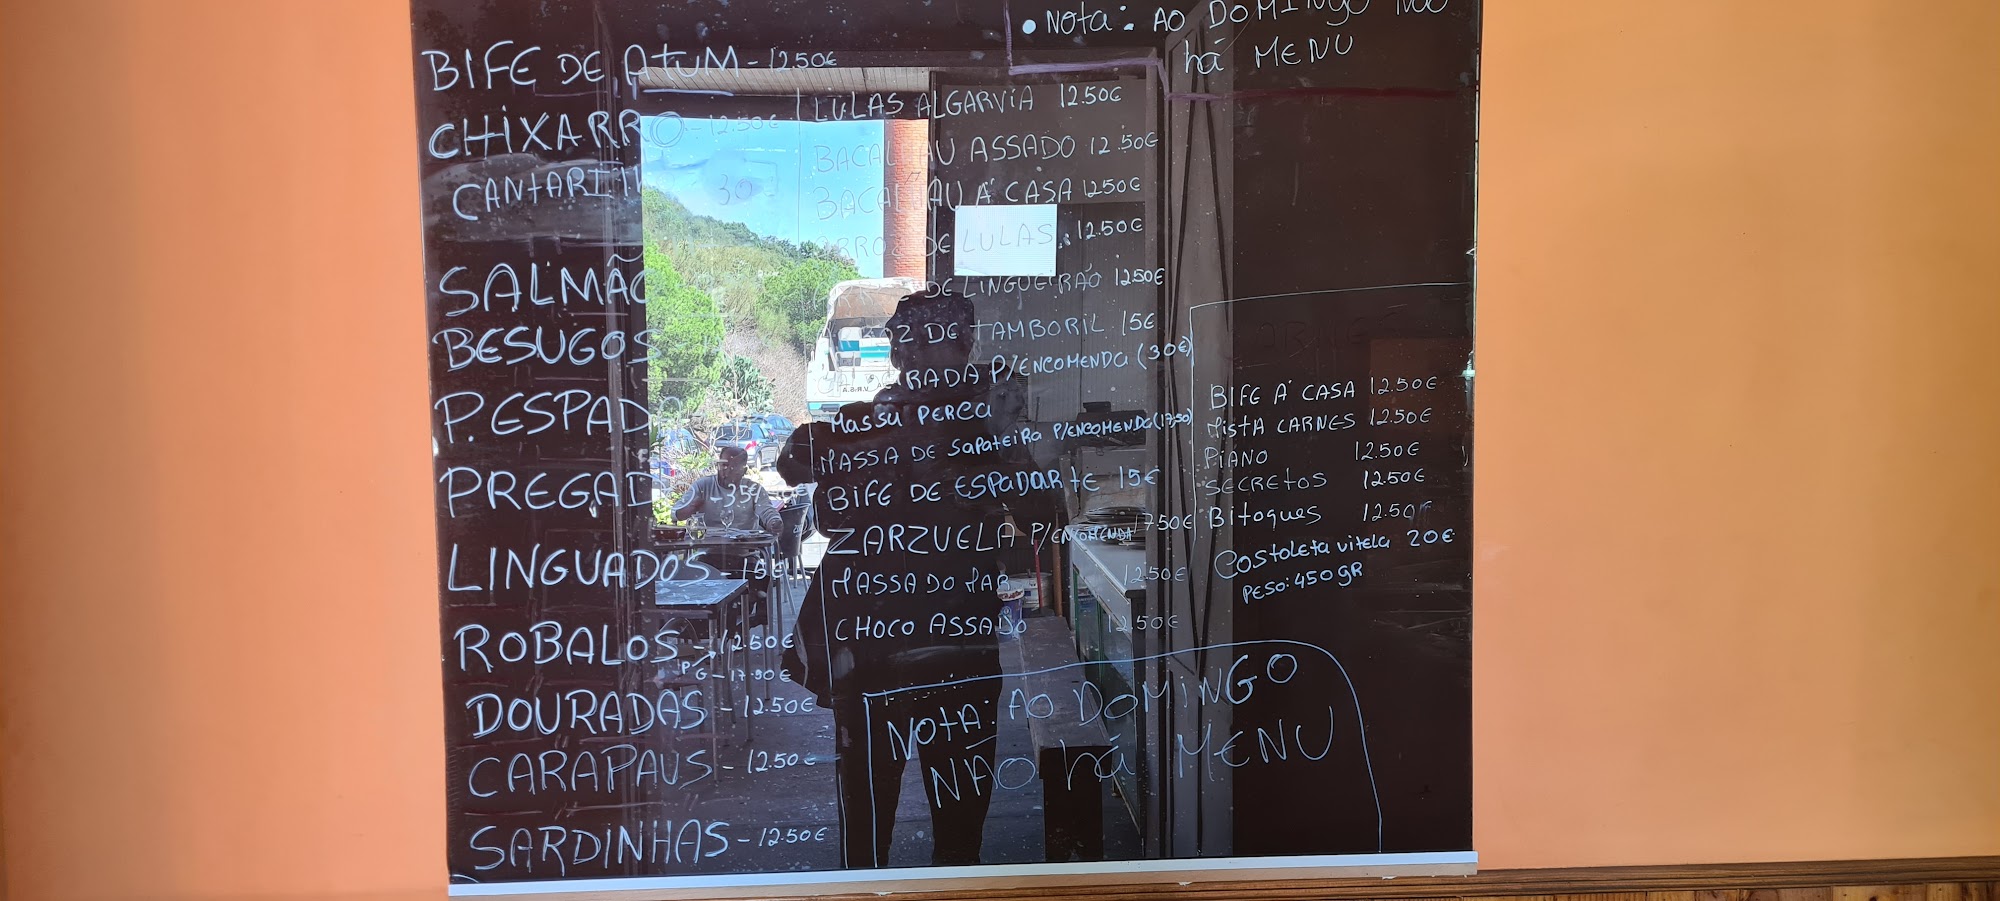 • Nota: AO DOMINGO NÃO
há MENU
BIFE DE AtUM - 12.50€
CHIXARRO - 12.50€
30
SALMÃO
BESUGOS
P. ESPADA
PREGADO - 35€
LINGUADOS - 15€
ROBALOS - 12.50€
P G - 17.90€
DOURADAS - 12.50€
CARAPAUS - 12.50€
SARDINHAS - 12.50€
LULAS ALGARVIA 12.50€
BACALHAU ASSADO 12.50€
BACALHAU À CASA 12.50€
ARROZ DE LULAS 12.50€
DE LINGUEIRÃO 12.50€
DE TAMBORIL 15€
P/ENCOMENDA (30€)
MASSA DE SAPATEIRA P/ENCOMENDA (17,50)
BIFE DE ESPADARTE 15€
ZARZUELA P/ENCOMENDA 17.50€
MASSA DO MAR 12.50€
CHOCO ASSADO 12.50€
BIFE À CASA 12.50€
MISTA CARNES 12.50€
PIANO 12.50€
SECRETOS 12.50€
Bitoques 12.50€
Costoleta vitela 20€
PESO: 450 gR
NOtA: AO DOMINGO
NÃO há MENU